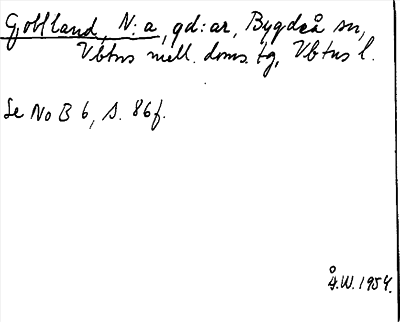 Gjottland, N:a, gd:ar, Bygdeå sn,
Vbtns mell. doms. tg, Vbtns l.
Se No B 6, s. 86f.
Å.W. 1954.